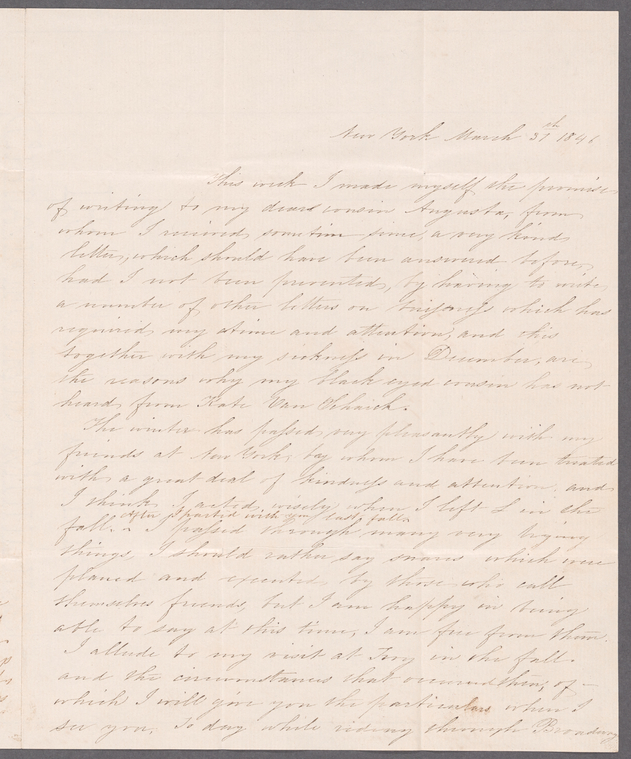 New York March 31st 1846
This week I made myself the promise
of writing to my dear cousin Augusta, from
whom I received sometime since, a very kind
letter, which should have been answered before,
had I not been prevented, by having to write
a number of other letters on business which has
required my time and attention, and this
together with my sickness in December, are
the reasons why my black eyed cousin has not
heard from Kate Van Schaick.
The winter has passed very pleasantly with my
friends at New York, by whom I have been treated
with a great deal of kindness and attention, and
I think I acted wisely when I left L in the
after I parted with you last fall
fall. I passed through many very trying
things, I should rather say snares which were
planed and executed by those who call
themselves friends, but I am happy in being
able to say at this time, I am free from them.
I allude to my visit at Troy in the fall.
and the circumstances that occurred then, of
which I will give you the particulars when I
see you. To day while riding through Broadway